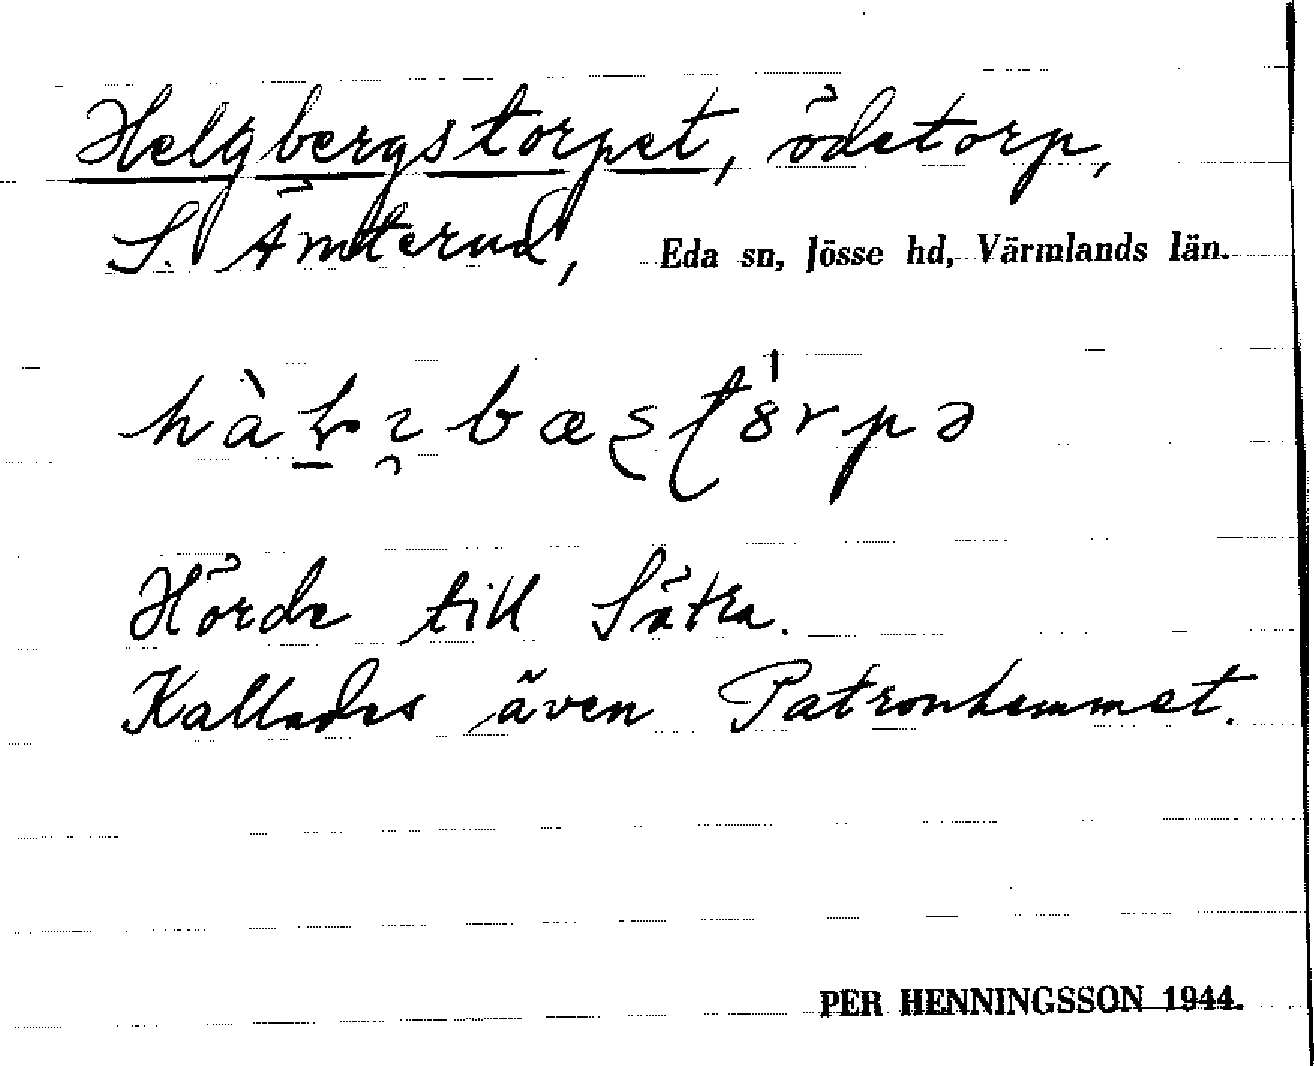 Helgbergstorpet, ödetorp,
S. Ämterud, Eda sn, Jösse hd, Värmlands län.
Hörde till Sätra.
Kallades även Patronhemmet.
PER HENNINGSSON 1944.